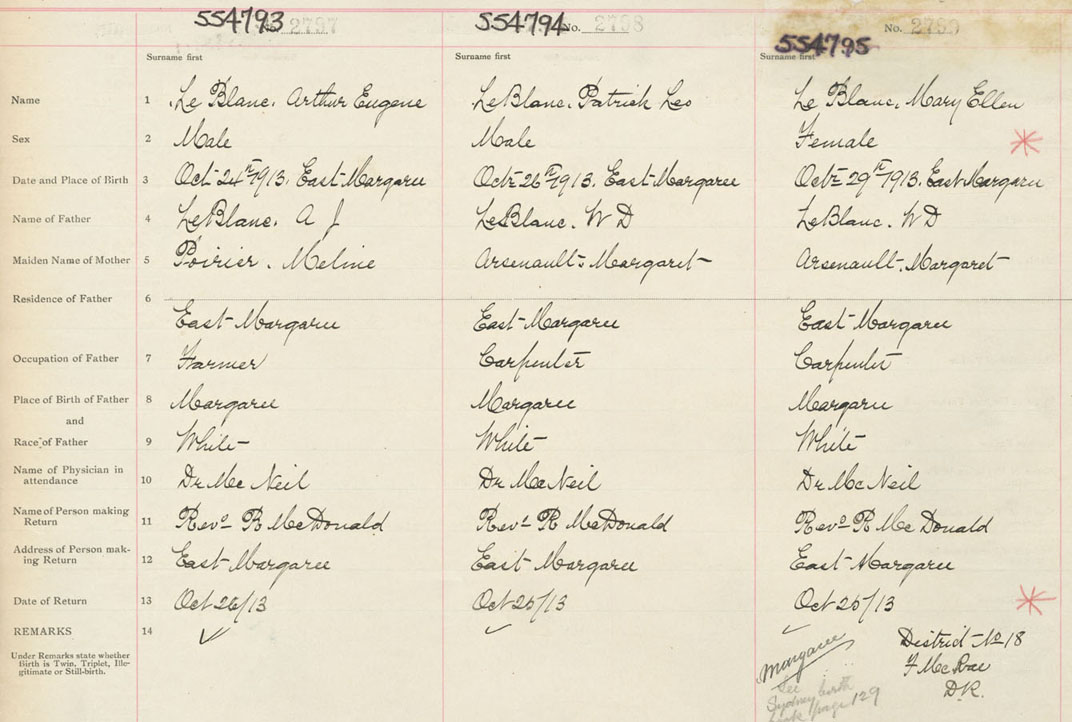 554793 No. 2797 554794 No. 2798 554795 No.
Surname first Surname first Surname first
Name 1 Le Blanc. Arthur Eugene LeBlanc. Patrick Leo Le Blanc. Mary Ellen
Sex 2 Male Male Female
Date and Place of Birth 3 Oct 24th 1913. East Margaree Octr 26th 1913. East Margaree Octr 29th 1913. East Margaree
Name of Father 4 LeBlanc. A J LeBlanc. W D LeBlanc. W D
Maiden Name of Mother 5 Poirier. Meline Arsenault. Margaret Arsenault. Margaret
Residence of Father 6
East Margaree East Margaree East Margaree
Occupation of Father 7 Farmer Carpenter Carpenter
Place of Birth of Father 8 Margaree Margaree Margaree
and
Race of Father 9 White White White
Name of Physician in
attendance 10 Dr McNeil Dr McNeil Dr McNeil
Name of Person making
Return 11 Revd R McDonald Revd R McDonald Revd R McDonald
Address of Person mak-
ing Return 12 East Margaree East Margaree East Margaree
Date of Return 13 Oct 26/13 Oct 25/13 Oct 25/13
REMARKS 14
Under Remarks state whether
Birth is Twin, Triplet, Ille-
gitimate or Still-birth.
District No 18
F McRae
D.R.
Margaree
See
Sydney birth
book page 129